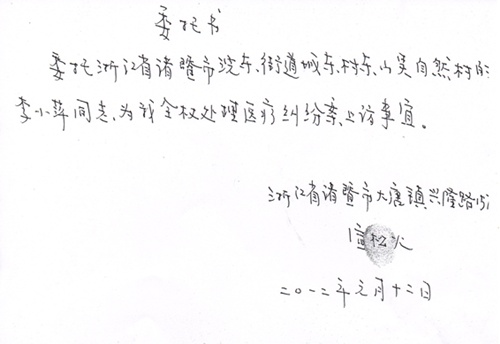 委托书
委托浙江省诸暨市浣东街道城东村东山吴自然村的
李小萍同志、为我全权处理医疗纠纷案上访事宜。
浙江省诸暨市大唐镇兴隆路15
松火
二〇一二年元月十二日